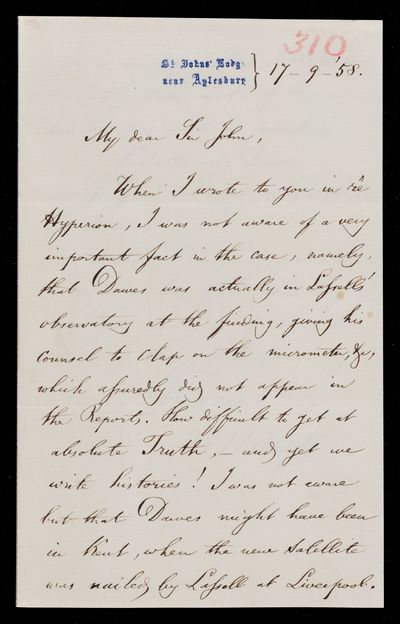 310
St. Johns' Lodge
near Aylesbury } 17-9-'58.
My dear Sir John,
When I wrote to you in re
Hyperion, I was not aware of a very
important fact in the case, namely,
that Dawes was actually in Lassell's
observatory at the finding, giving his
counsel to clap on the micrometer, &c,
which assuredly did not appear in
the Reports. How difficult to get at
absolute Truth, - and yet we
write histories! I was not aware
but that Dawes might have been
in Kent, when the new satellite
was nailed by Lassell at Liverpool.